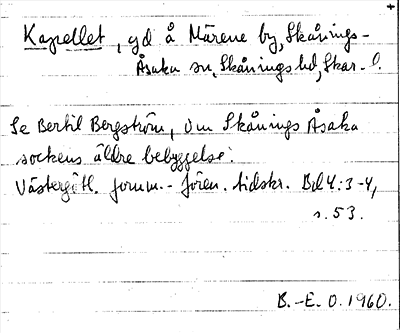 Kapellet, gd å Märene by, Skånings-
Åsaka sn, Skånings hd, Skar. l.
Se Bertil Bergström, Om Skånings Åsaka
sockens äldre bebyggelse.
Västergötl. fornm.-fören. tidskr. Bd 4:3-4,
s. 53.
B.-E. O. 1960.